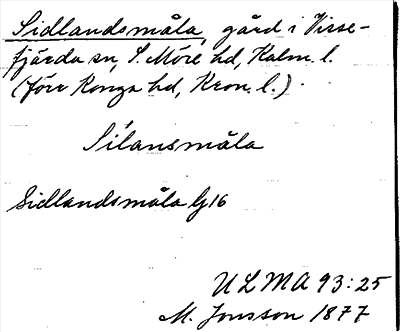 Sidlandsmåla, gård i Visse-
fjärda sn, S. Möre hd, Kalm. l.
(förr Konga hd, Kron. l.)
Silansmåla
Sidlandsmåla G16
ULMA 93:25
M. Jonsson 1877